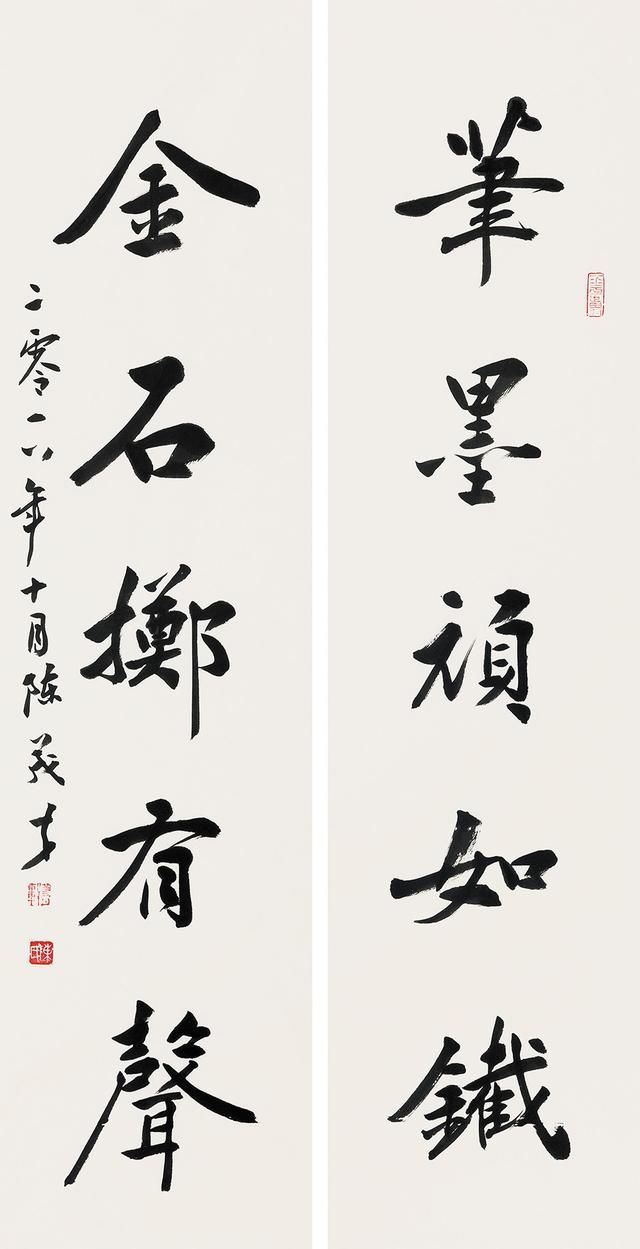 筆墨頑如鐵
金石擲有聲
二零一八年十月陳義才